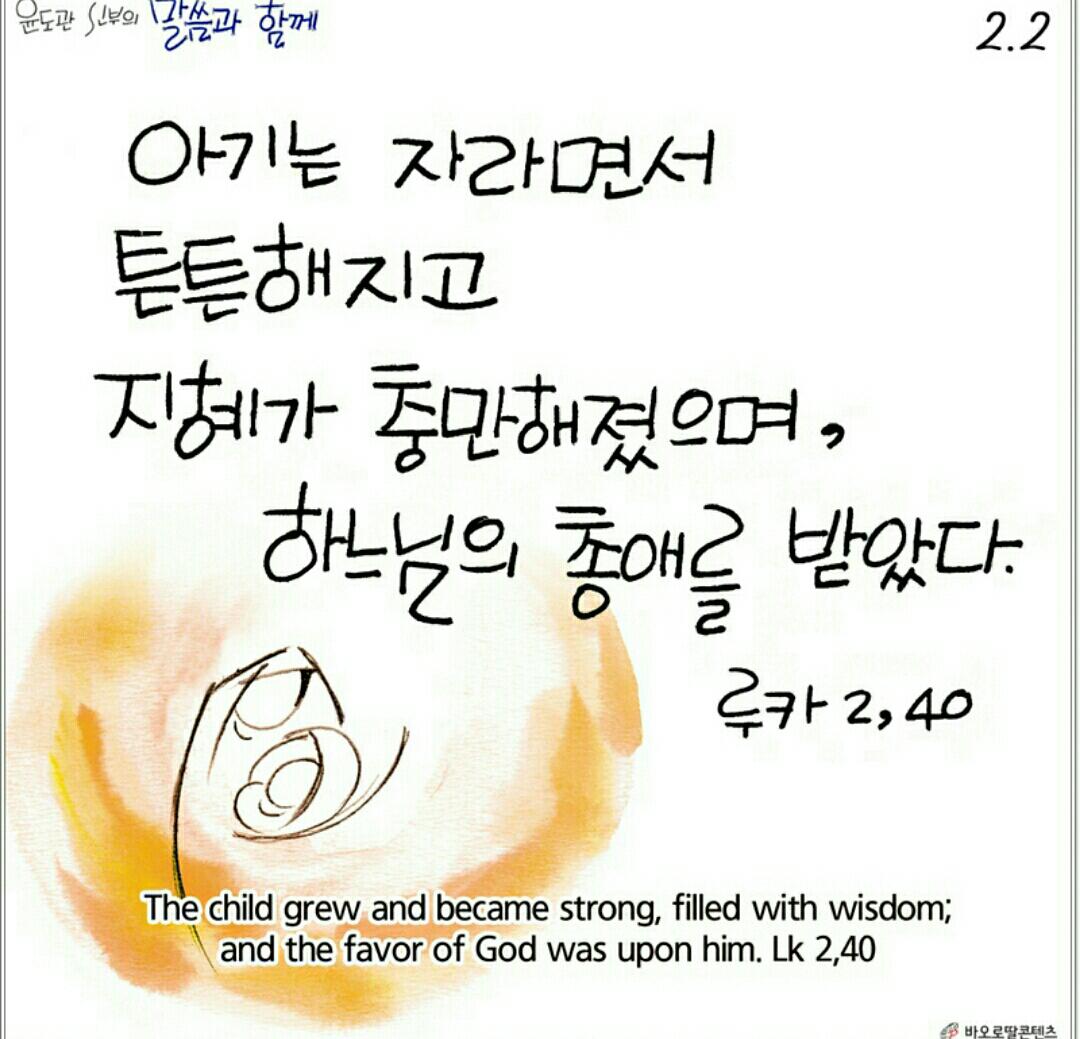 윤도관 신부의 말씀과 함께
2.2
아기는 자라면서
튼튼해지고
지혜가 충만해졌으며,
하느님의 총애를 받았다.
루카 2,40
The child grew and became strong, filled with wisdom;
and the favor of God was upon him. Lk 2,40
바오로딸콘텐츠